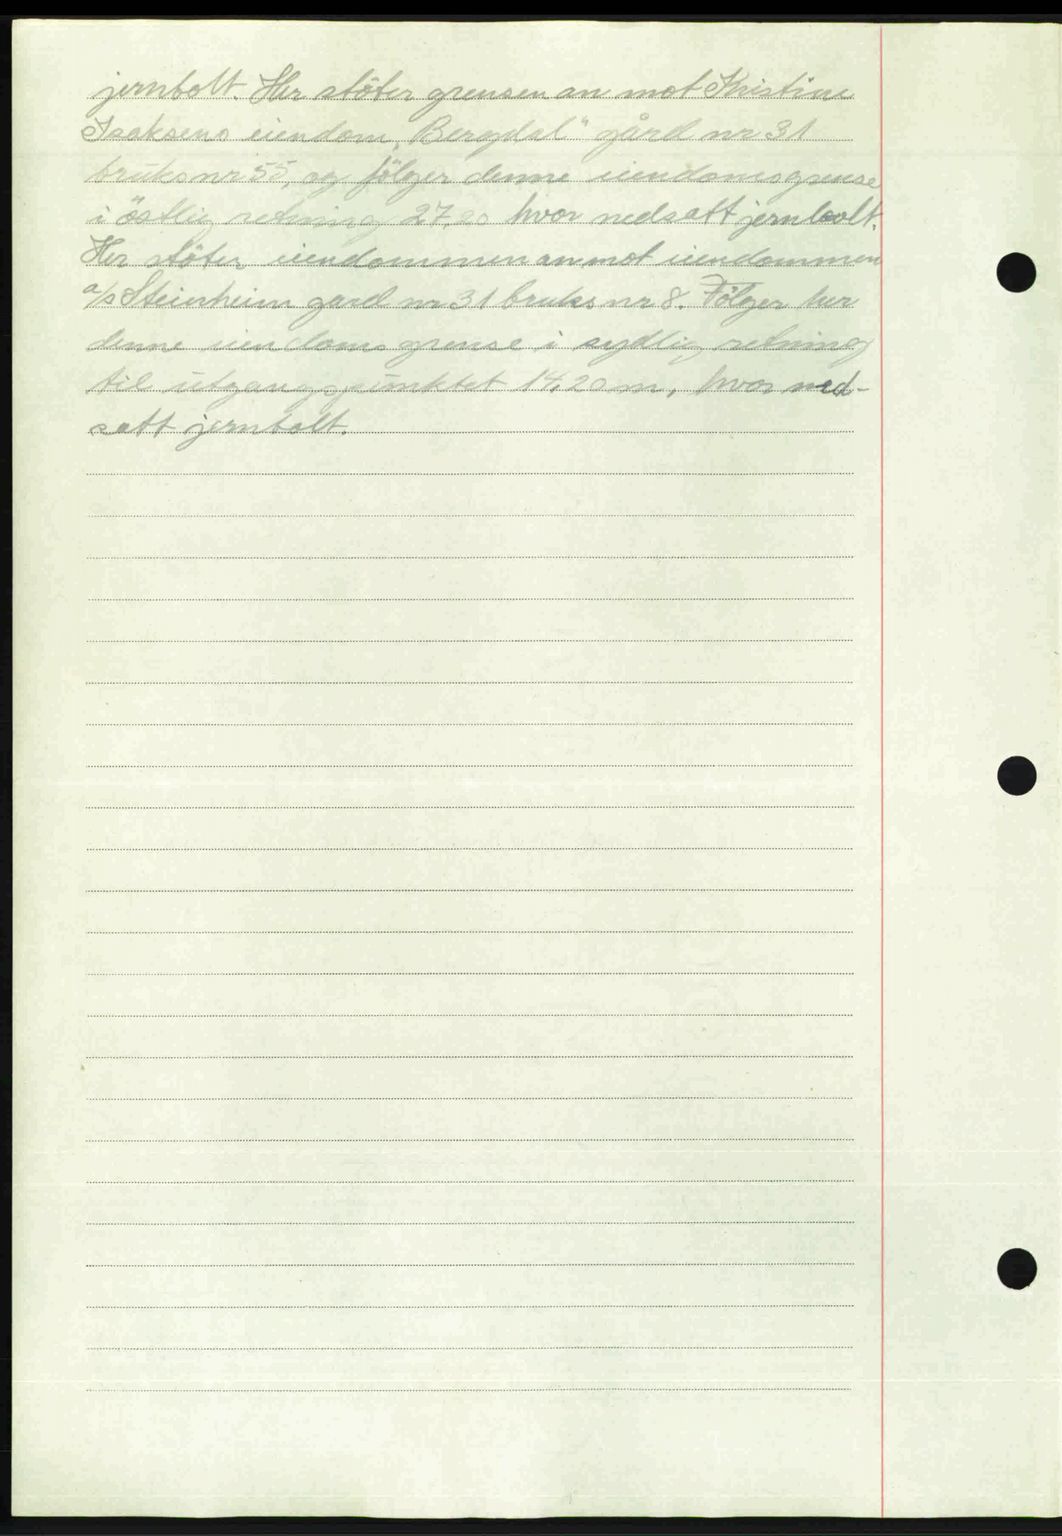 jernbolt. Her stöter grensen an mot Kristine
Isaksens eiendom „Bergdal" gård nr 31
bruksnr 55, og følger denne eiendomsgrense
i östlig retning 27,20 hvor nedsatt jernbolt.
Her stöter eiendommen an mot eiendommen
a/s Steinheim gard nr 31 bruks nr 8. Fölger her
denne eiendoms grense i sydlig retning
til utgangspunktet 14,20 m, hvor ned-
satt jernbolt.